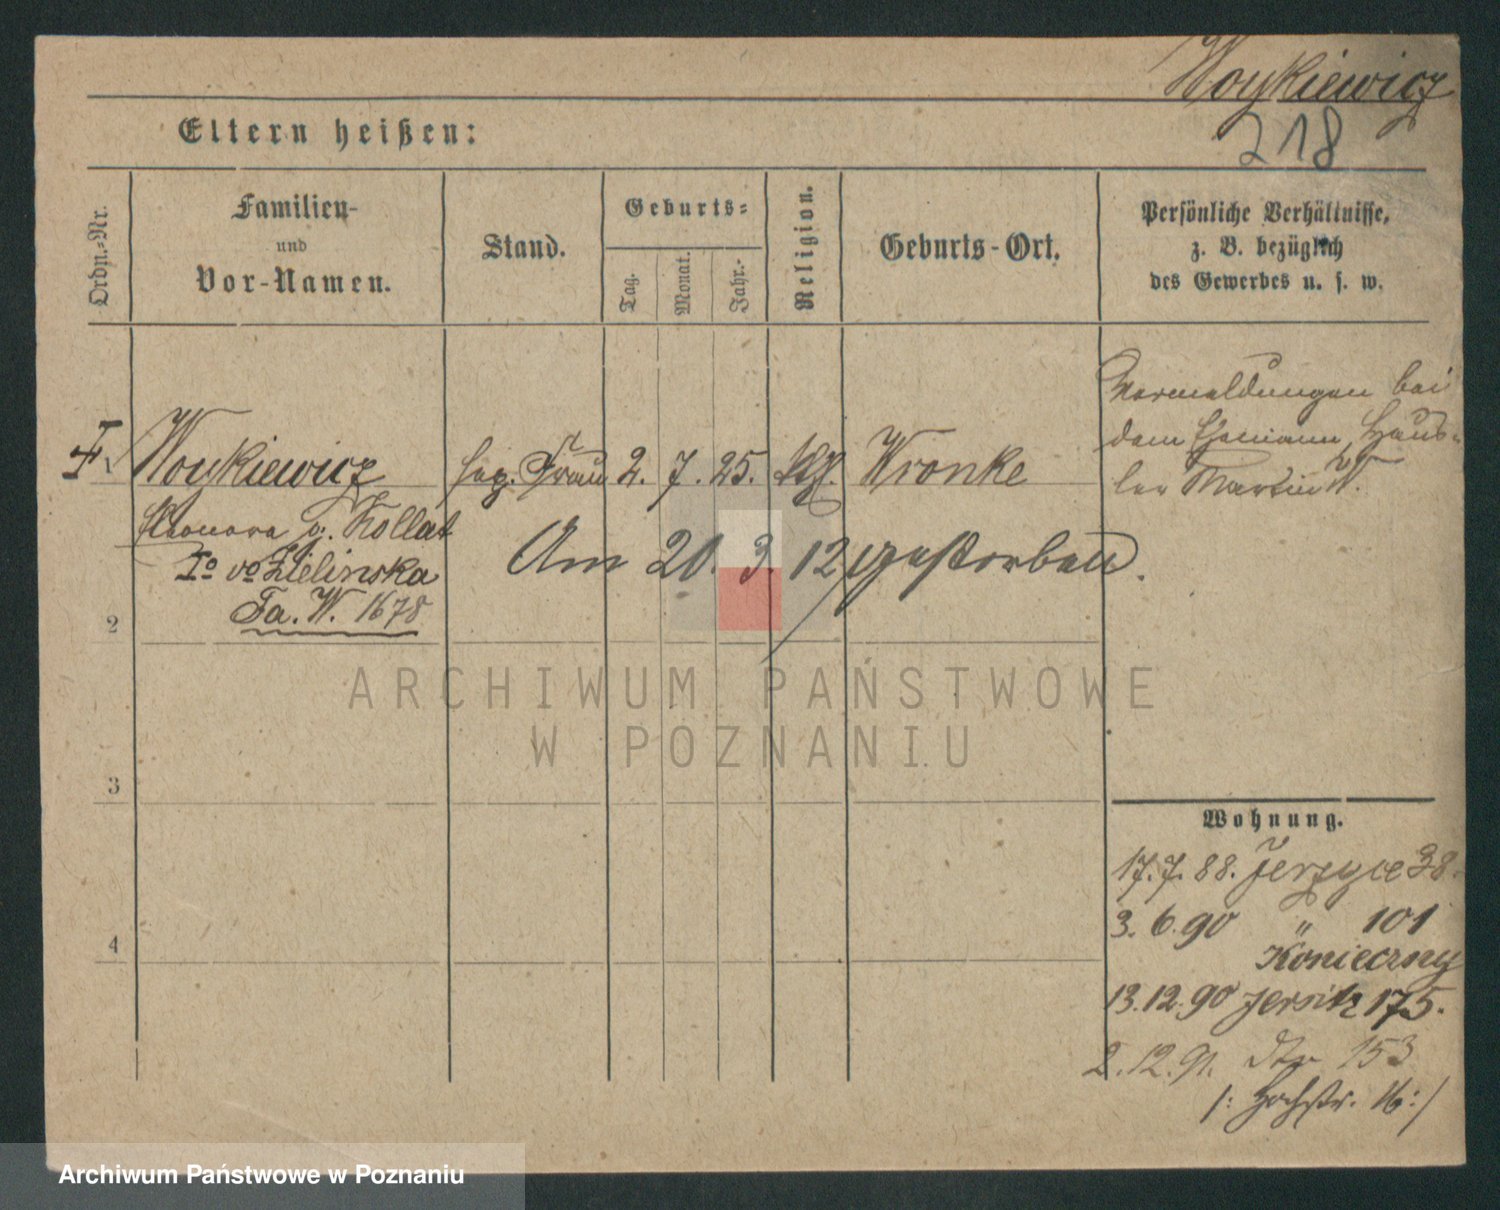 Woykiewicz
218
Eltern heißen:
Ordn.-Nr.
Familien-
und
Vor-Namen.
Stand.
Geburts-
Tag.
Monat.
Jahr.-
Religion.
Geburts-Ort.
Persönliche Verhältnisse,
z. B. bezüglich
des Gewerbes u. s. w.
Vormeldungen bei
dem Ehemann, Häus-
ler Martin W.
Woykiewicz Frau 2. 7. 25. kth. Wronke
Eleonora g. Kollat
Io vo Zielinska
Fa. W. 1678
Am 20. 3. 12 gestorben.
2
3
4
ARCHIWUM PAŃSTWOWE
W POZNANIU
Wohnung.
17.7.88. Jerzyce 38.
3.6.90 " 101
Konieczny
13.12.90 Jersitz 175.
2.12.91. dto 153
/: Hochstr. 16 :/
Archiwum Państwowe w Poznaniu